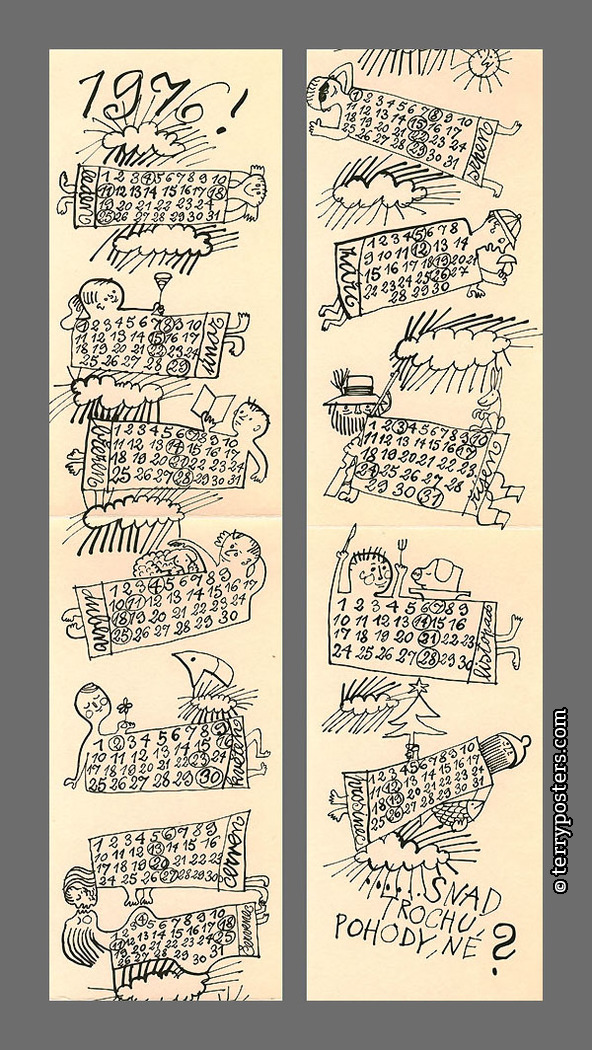 1976!
leden
1 2 3 4 5 6 7 8 9 10
11 12 13 14 15 16 17 18
19 20 21 22 23 24
25 26 27 28 29 30 31
únor
1 2 3 4 5 6 7 8 9 10
11 12 13 14 15 16 17
18 19 20 21 22 23 24
25 26 27 28 29
březen
1 2 3 4 5 6 7 8 9 10
11 12 13 14 15 16 17
18 19 20 21 22 23 24
25 26 27 28 29 30 31
duben
1 2 3 4 5 6 7 8 9
10 11 12 13 14 15 16 17
18 19 20 21 22 23 24
25 26 27 28 29 30
květen
1 2 3 4 5 6 7 8 9
10 11 12 13 14 15 16
17 18 19 20 21 22 23 24
25 26 27 28 29 30 31
červen
1 2 3 4 5 6 7 8 9
10 11 12 13 14 15 16
17 18 19 20 21 22 23
24 25 26 27 28 29 30
červenec
1 2 3 4 5 6 7 8 9 10
11 12 13 14 15 16 17 18
19 20 21 22 23 24 25
26 27 28 29 30 31
srpen
1 2 3 4 5 6 7 8 9 10
11 12 13 14 15 16 17
18 19 20 21 22 23 24
25 26 27 28 29 30 31
1 2 3 4 5 6 7 8
9 10 11 12 13 14
15 16 17 18 19 20 21
22 23 24 25 26 27
28 29 30
říjen
1 2 3 4 5 6 7 8 9 10
11 12 13 14 15 16 17
18 19 20 21 22 23
24 25 26 27 28
29 30 31
listopad
1 2 3 4 5 6 7 8 9
10 11 12 13 14 15 16
17 18 19 20 21 22 23
24 25 26 27 28 29 30
prosinec
1 2 3 4 5 6 7 8 9 10
11 12 13 14 15 16 17
18 19 20 21 22 23 24
25 26 27 28 29 30 31
......SNAD
TROCHU,
POHODY, NE?
© terryposters.com